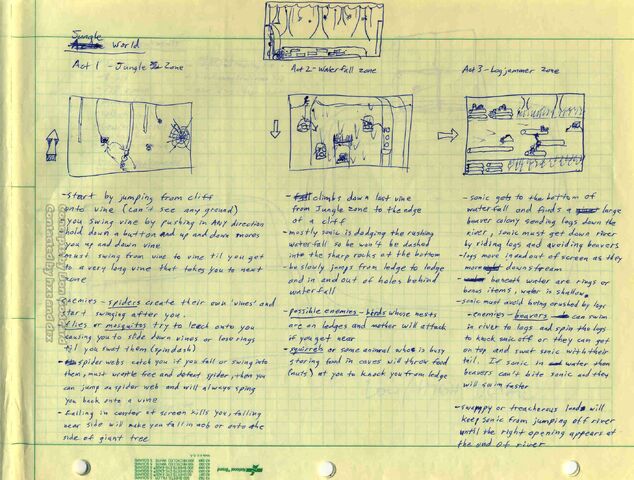 Jungle World
Act 1 - Jungle Zone
Act 2 - Waterfall zone
Act 3 - Logjammer zone
- Start by jumping from cliff
onto vine (can't see any ground)
- you swing vine by pushing in ANY direction
hold down a button and up and down moves
you up and down vine
- must swing from vine to vine til you get
to a very long vine that takes you to next
zone
enemies - spiders create their own 'vines' and
start swinging after you.
- flies or mosquitos try to leech onto you
causing you to slide down vines or lose rings
'til you swat them (spindash)
- spider webs catch you if you fall or swing into
them, must wrestle free and defeat spider, then you
can jump on spider web and will always spring
you back onto a vine
- falling in center of screen kills you, falling
near side will make you fall in or onto the
side of giant tree
- climbs down last vine
from Jungle zone to the edge
of a cliff
- mostly sonic is dodging the rushing
waterfall so he won't be dashed
into the sharp rocks at the bottom
- he slowly jumps from ledge to ledge
and in and out of holes behind
waterfall
- possible enemies - birds whose nests
are on ledges and mother will attack
if you get near
- squirrels or some animal who is busy
storing food in caves will throw food
(nuts) at you to knock you from ledge
- sonic gets to the bottom of
waterfall and finds a large
beaver colony sending logs down the
river, sonic must get down river
by riding logs and avoiding beavers
- logs move in and out of screen as they
move downstream
- beneath water are rings or
bonus items, water is shallow.
- sonic must avoid being crushed by logs
- enemies - beavers can swim
in river to logs and spin the logs
to knock sonic off or they can get
on top and swat sonic with their
tail. If sonic in water then
beavers can't bite sonic and they
will swim faster
- swampy or treacherous lands will
keep sonic from jumping off river
until the right opening appears at
the end of river